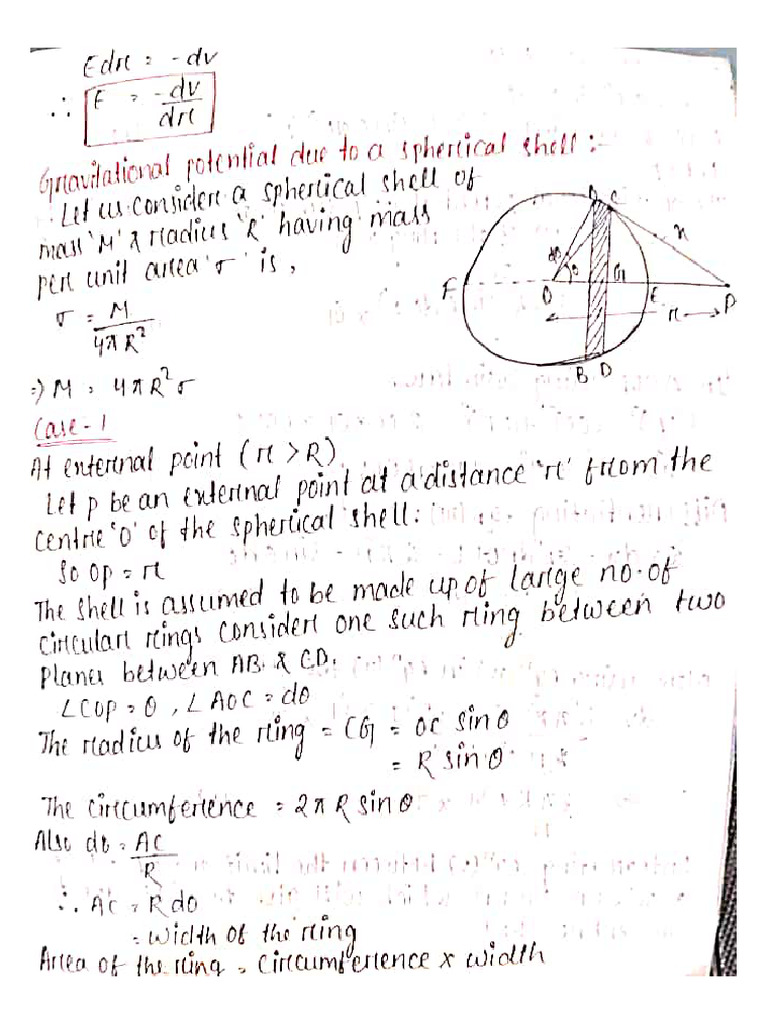 E dr = -dv
∴ E = -dv/dr
Gravitational potential due to a spherical shell :-
Let us consider a spherical shell of
mass 'M' & radius 'R' having mass
per unit area 'σ' is,
σ = M/4πR²
⇒ M = 4πR²σ
A C
x
dθ
θ
F O G E P
r
B D
Case-1
At external point (r > R)
Let p be an external point at a distance 'r' from the
centre 'O' of the spherical shell:
So OP = r
The shell is assumed to be made up of large no. of
circular rings consider one such ring between two
planes between AB & CD.
∠COP = θ, ∠AOC = dθ
The radius of the ring = CG = OC sin θ
= R sin θ
The circumference = 2πR sin θ
Also dθ = AC/R
∴ AC = R dθ
= width of the ring
Area of the ring = circumference x width